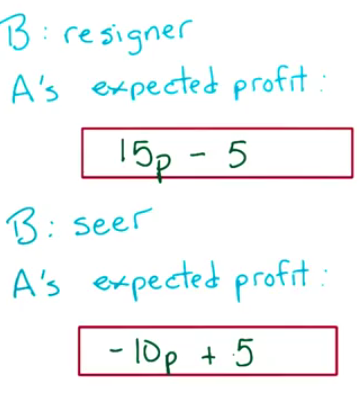 B: resigner
A's expected profit:
15p - 5
B: seer
A's expected profit:
-10p + 5